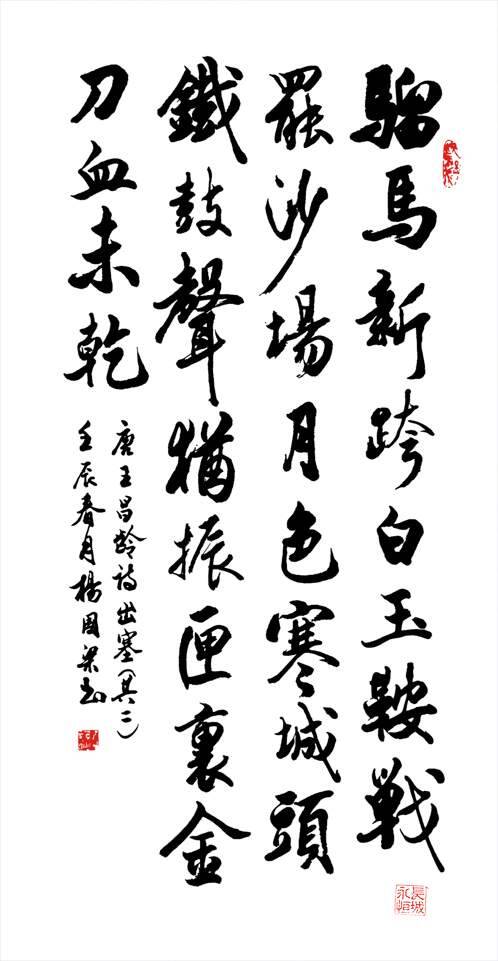 騮馬新跨白玉鞍戰
罷沙場月色寒城頭
鐵鼓聲猶振匣裏金
刀血未乾
唐王昌齡詩出塞(其二)
壬辰春月楊國梁書
長城永恒